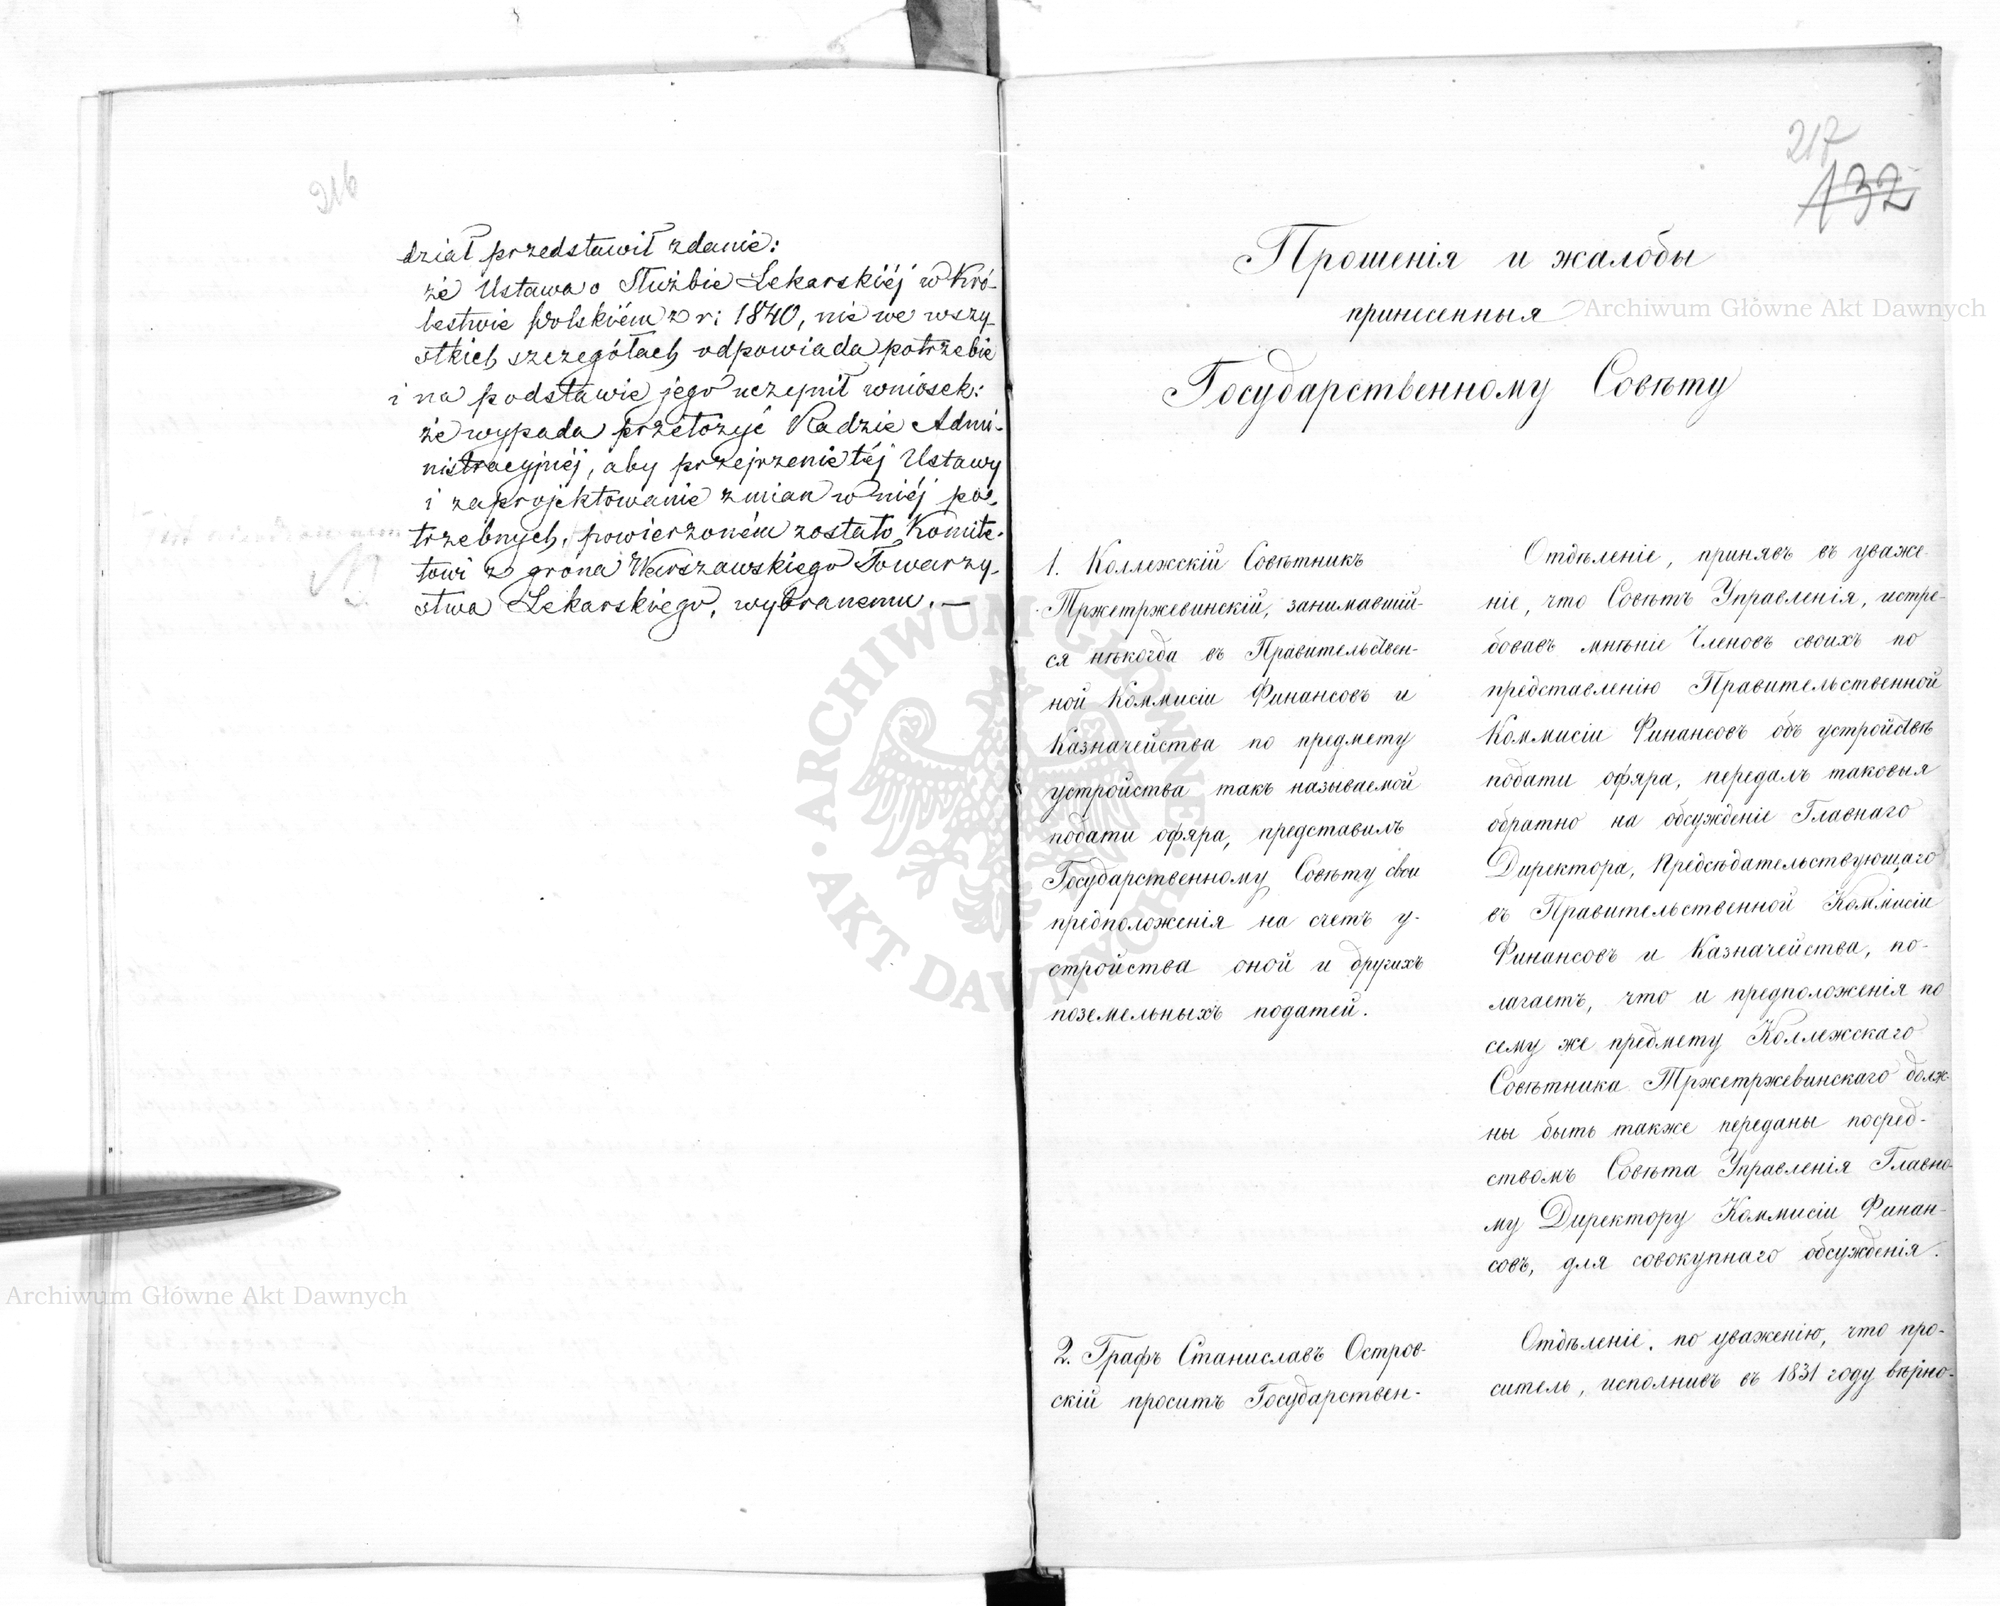 216
dział przedstawił zdanie:
że Ustawa o Służbie Lekarskiéj w Kró-
lestwie polskiém z r: 1840, nie we wszy-
stkich szczegółach odpowiada potrzebie
i na podstawie jego uczynił wniosek:
że wypada przełożyć Radzie Admi-
nistracyjnéj, aby przejrzenie téj Ustawy
i zaprojektowanie zmian w niéj po-
trzebnych, powierzoném zostało Komite-
towi z grona Warszawskiego Towarzy-
stwa Lekarskiego, wybranemu. —
217
132
Прошенія и жалобы
принесенныя
Государственному Совѣту
1. Коллежскій Совѣтникъ
Тржетржевинскій, занимавшій-
ся нѣкогда въ Правительствен-
ной Коммисіи Финансовъ и
Казначейства по предмету
устройства такъ называемой
подати офяра, представилъ
Государственному Совѣту свои
предположенія на счетъ у-
стройства оной и другихъ
поземельныхъ податей.
2. Графъ Станиславъ Остров-
скій проситъ Государствен-
Отдѣленіе, принявъ въ уваже-
ніе, что Совѣтъ Управленія, истре-
бовавъ мнѣніе Членовъ своихъ по
представленію Правительственной
Коммисіи Финансовъ объ устройствѣ
подати офяра, передалъ таковыя
обратно на обсужденіе Главнаго
Директора, Предсѣдательствующаго
въ Правительственной Коммисіи
Финансовъ и Казначейства, по-
лагаетъ, что и предположенія по
сему же предмету Коллежскаго
Совѣтника Тржетржевинскаго долж-
ны быть также переданы посред-
ствомъ Совѣта Управленія Главно-
му Директору Коммисіи Финан-
совъ, для совокупнаго обсужденія.
Отдѣленіе, по уваженію, что про-
ситель, исполнивъ въ 1831 году вѣрно-
Archiwum Główne Akt Dawnych
Archiwum Główne Akt Dawnych
ARCHIWUM GŁÓWNE AKT DAWNYCH